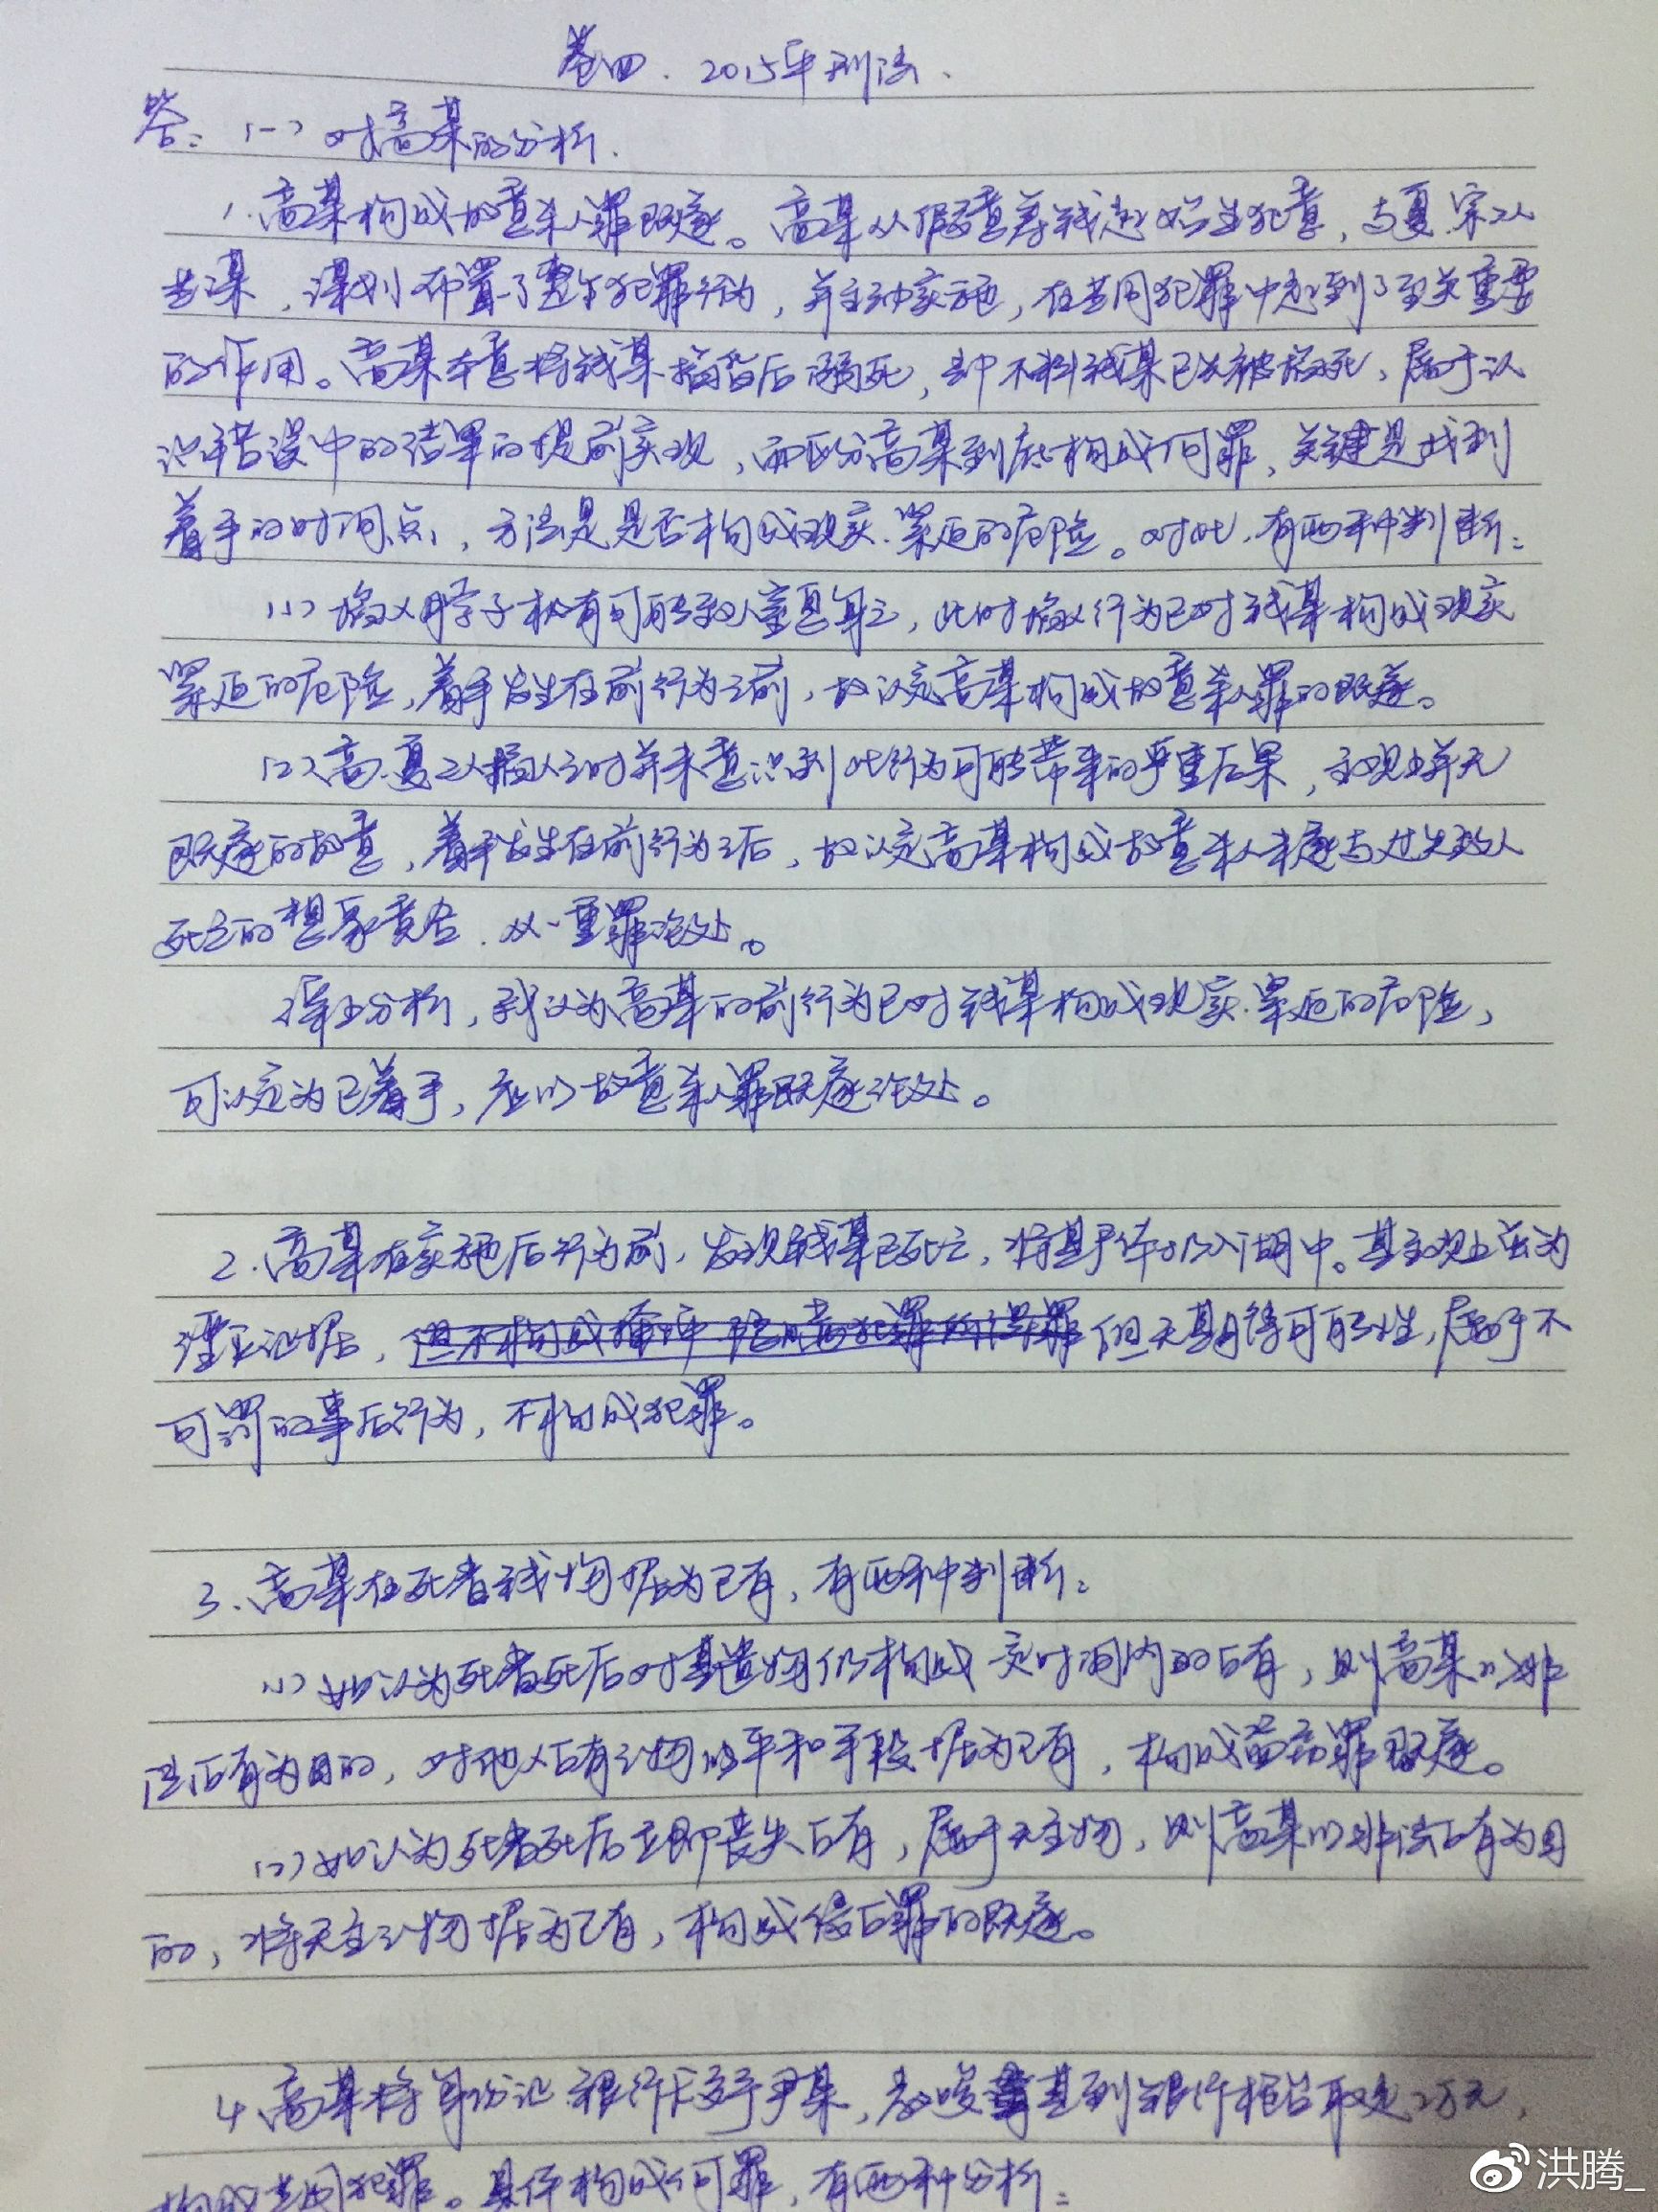 卷四. 2015年刑法.
答: (一) 对高某的分析.
1.高某构成故意杀人罪既遂。高某从假意筹钱起始生犯意,与夏、宗二人
共谋,谋划布置了整个犯罪行为,并主动实施,在共同犯罪中起到了至关重要
的作用。高某本意将钱某掐昏后溺死,不料钱某已被掐死,属于认
识错误中的结果的提前实现,而区分高某到底构成何罪,关键是找到
着手的时间点,方法是是否构成现实.紧迫的危险。对此,有两种判断:
(1) 掐人脖子极有可能致人窒息身亡,此时掐人行为已对钱某构成现实
紧迫的危险,着手发生在前行为之前,故认定高某构成故意杀人罪的既遂。
(2)高.夏二人掐人之时并未意识到此行为可能带来的严重后果,主观上并无
既遂的故意,着手发生在前行为之后,故认定高某构成故意杀人未遂与过失致人
死亡的想象竞合.从一重罪论处。
综上分析,我认为高某的前行为已对钱某构成现实.紧迫的危险,
可认定为已着手,应以故意杀人罪既遂论处。
2.高某在实施后行为前,发现钱某已死亡,将其尸体扔入湖中。其主观上虽为
湮灭证据,但不构成掩饰、隐瞒犯罪所得罪但无期待可能性,属于不
可罚的事后行为,不构成犯罪。
3.高某在死者钱物据为己有,有两种判断:
(1)如认为死者死后对其遗物仍构成一定时间内的占有,则高某以非
法占有为目的,对他人占有之物以平和手段据为己有,构成盗窃罪既遂。
(2)如认为死者死后立即丧失占有,属于无主物,则高某以非法占有为目
的,将无主之物据为己有,构成侵占罪的既遂。
4.高某将身份证.银行卡交予尹某,教唆其到银行柜台取走2万元,
构成共同犯罪。具体构成何罪,有两种分析:
洪腾_